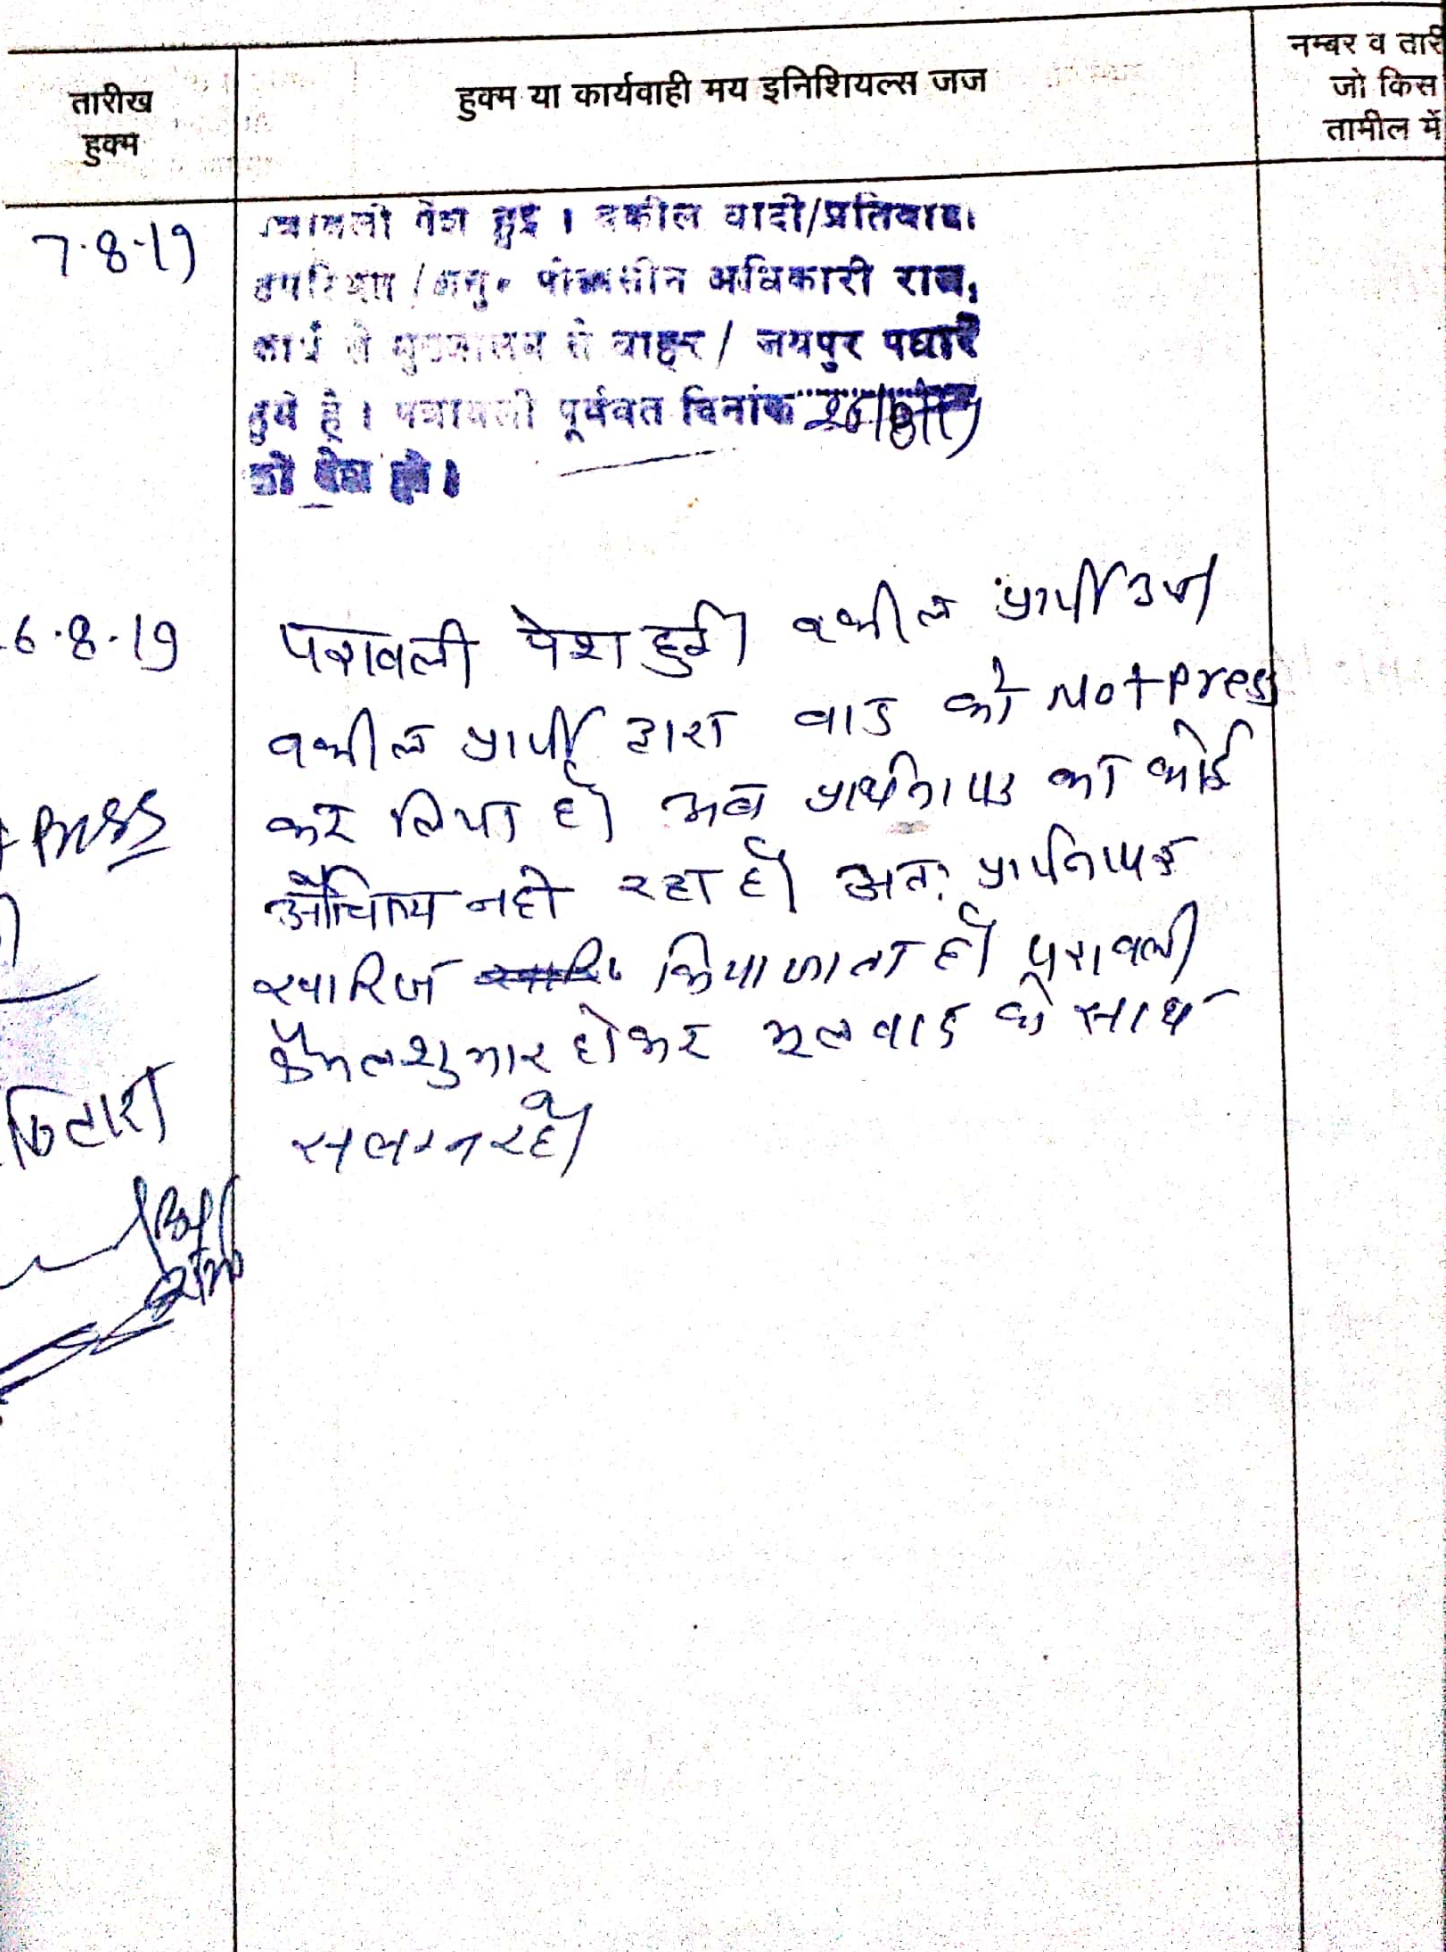 तारीख
हुक्म
हुक्म या कार्यवाही मय इनिशियल्स जज
नम्बर व तारी
जो किस
तामील में
7.8.19
पत्रावली पेश हुई । वकील वादी/प्रतिवादी
उपस्थित / अनु० पीठासीन अधिकारी राज.
कार्य से मुख्यालय से बाहर / जयपुर पधारे
हुये है । पत्रावली पूर्ववत दिनांक 26/8/19
को पेश हो ।
6.8.19
पत्रावली पेश हुई। वकील प्रार्थी उप।
वकील प्रार्थी द्वारा वाद को Not press
कर लिया है। अब प्रार्थना पत्र का कोई
औचित्य नही रहा है। अतः प्रार्थनापत्र
खारिज किया जाता है। पत्रावली
फैसलशुमार होकर मूलवाद के साथ
सलग्न रहे।
press